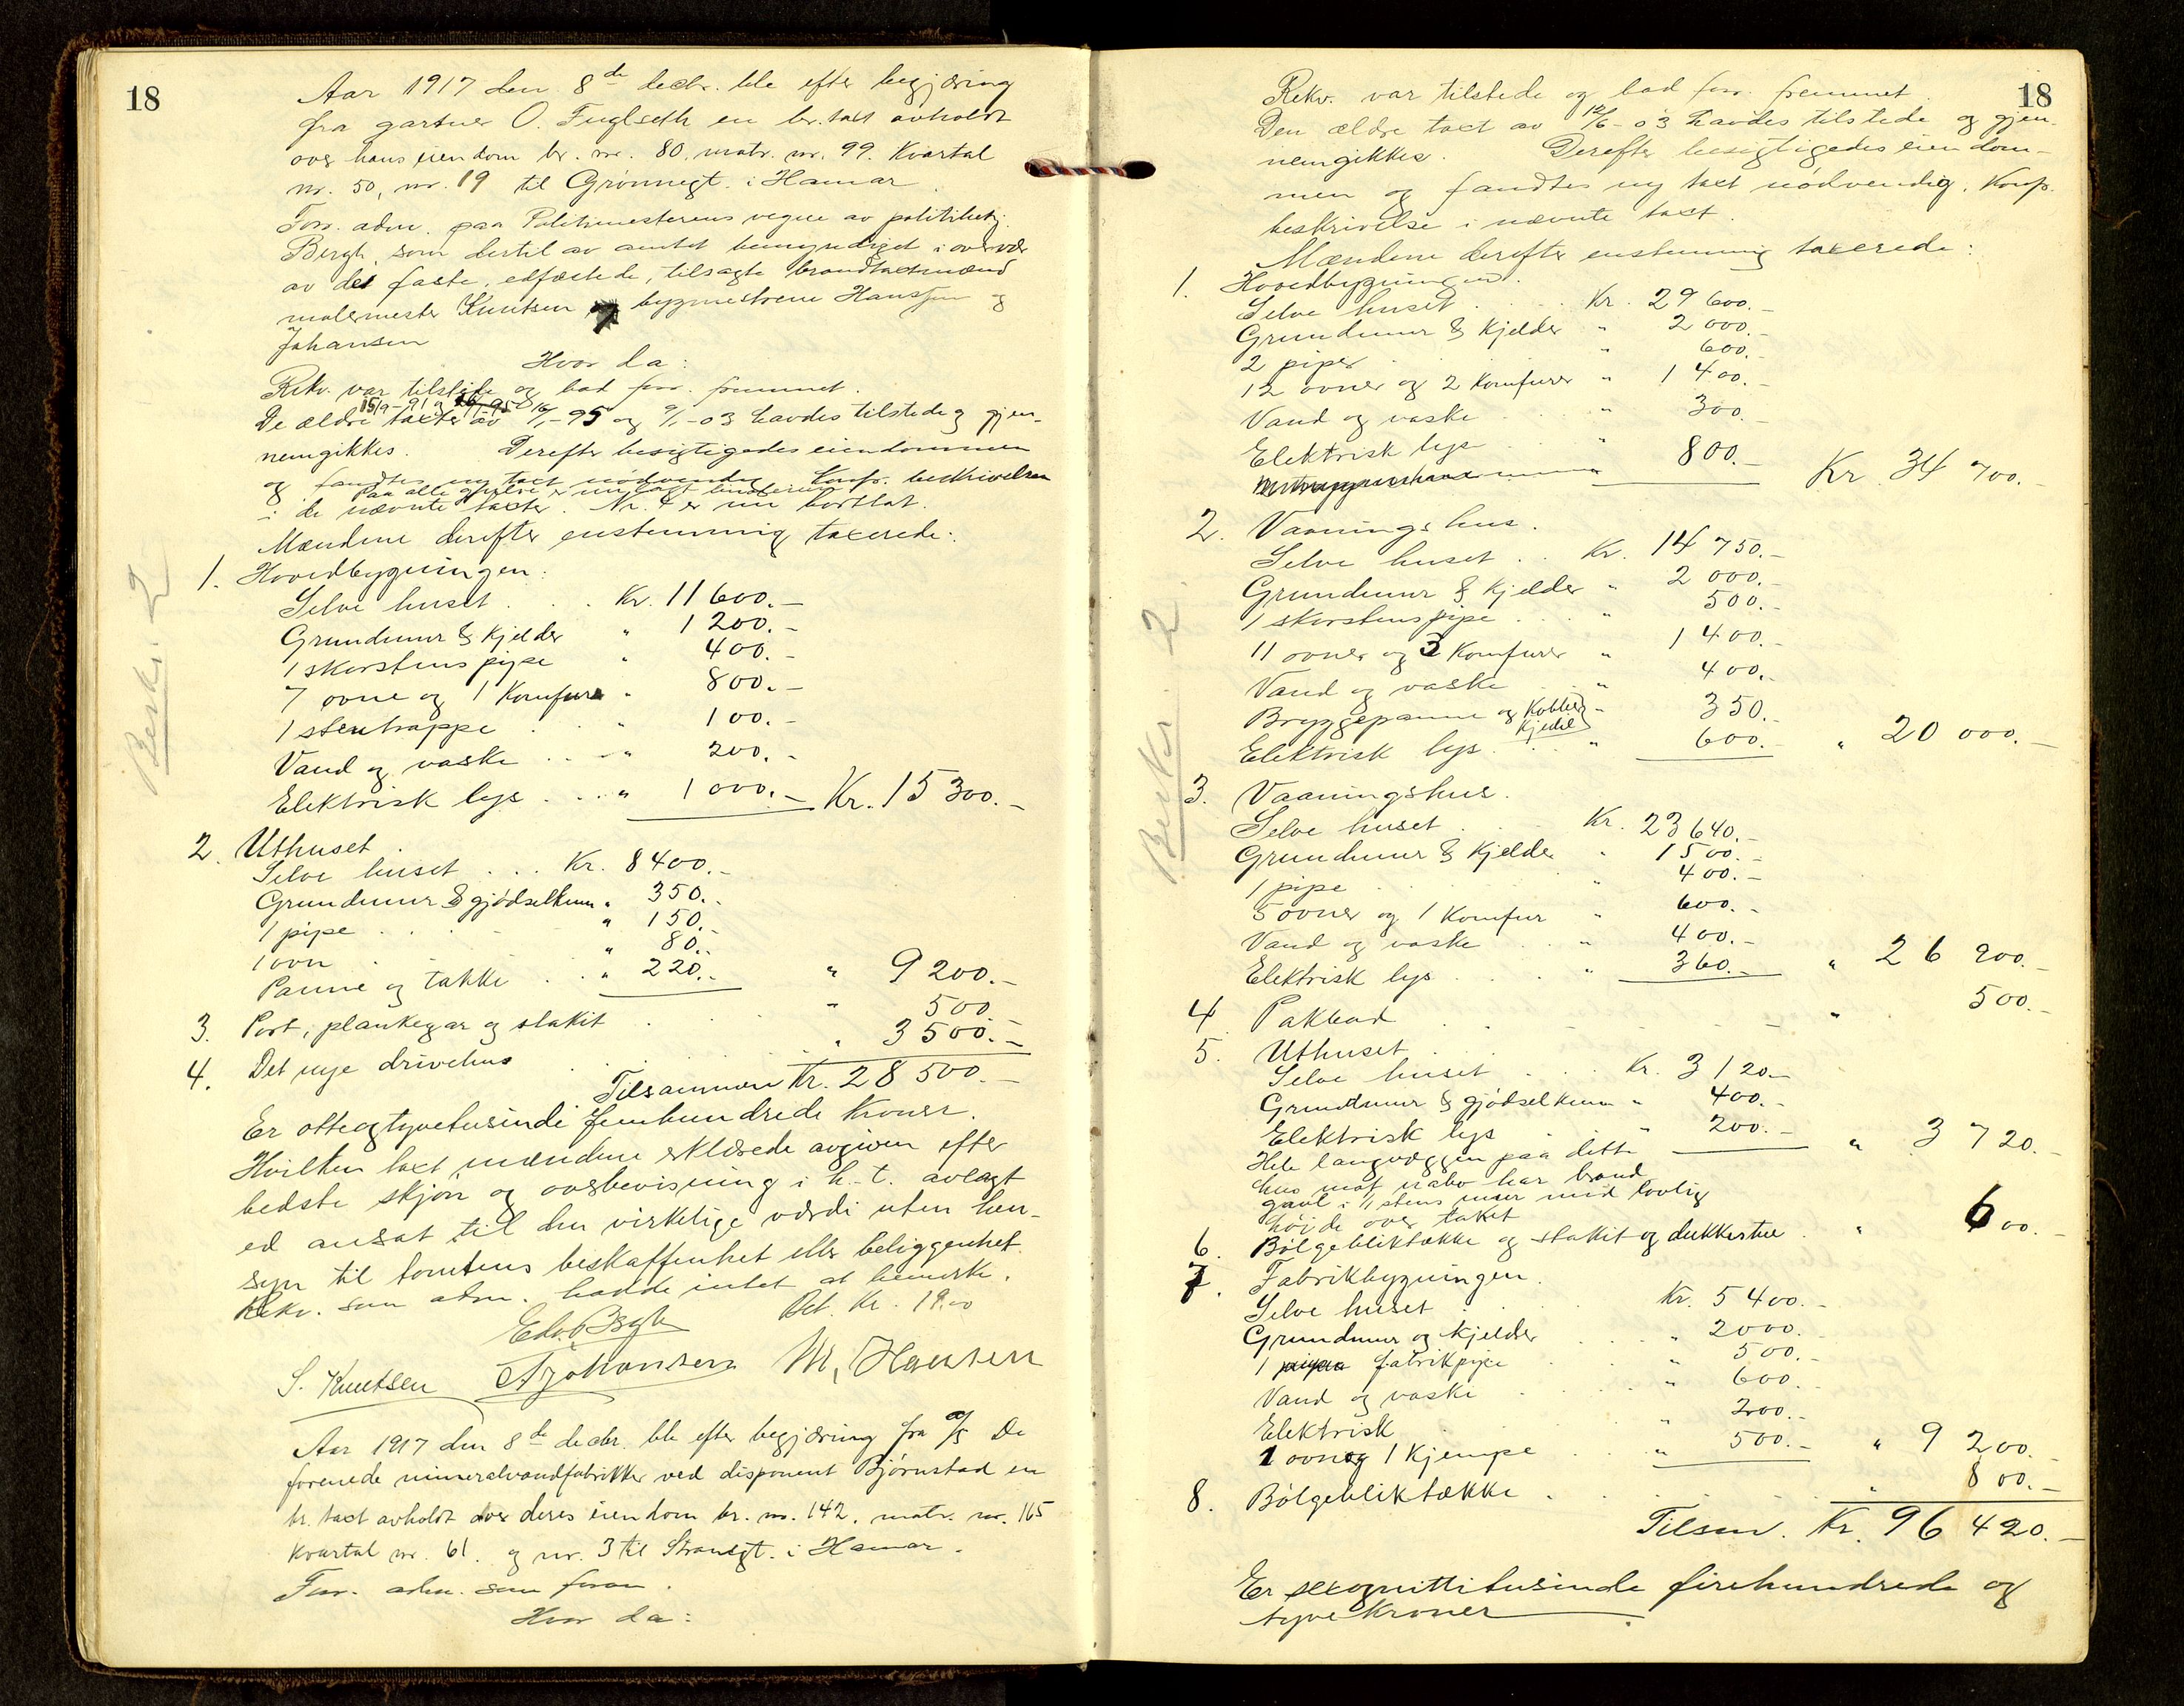 18
Aar 1917 den 8de decbr. ble efter begjæring
fra gartner O. Fuglseth en br.taxt avholdt
over hans eiendom br. nr. 80. matr. nr. 99. Kvartal
nr. 50, nr. 19 til Grønnegt. i Hamar.
Forr. adm. paa Politimesterens vegne av politibetj.
Bergh, som dertil av amtet bemyndiget i overvær
av de faste, edfæstede, tilsagte brandtaxtmænd
malermester Knutsen bygmestrene Hanssen og
Johansen
Hvor da:
Rekv. var tilstede og bad forr. fremmet.
De ældre taxter av 15/9-91 og 16/1-95 og 9/1-03 havdes tilstede og gjen-
nemgikkes. Derefter besigtigedes eiendommen
og fandtes ny taxt nødvendig Konfr. beskrivelsen
Paa alle gulve er nu lagt linoleum
i de nævnte taxter. Nr. 4 er nu bortsat.
Mændene derefter enstemmig taxerede:
Beskr. 2
1. Hovedbygningen:
Selve huset . . . Kr. 11 600.-
Grundmur & Kjelder " 1 200.-
1 skorstenspipe " 400.-
7 ovne og 1 Komfur " 800.-
1 stentrappe . . " 100.-
Vand og vaske . . . " 200.-
Elektrisk lys . . . " 1 000.- Kr. 15 300.-
2. Uthuset.
Selve huset . . . Kr. 8 400.-
Grundmur & gjødselkum " 350.-
1 pipe . . . " 150.-
1 ovn . . " 80.-
Panne og takke . . " 220.- " 9 200.-
3. Port, plankegar og stakit . . . " 500
4. Det nye drivehus . . . " 3 500.-
Tilsammen Kr. 28 500.-
Er otteogtyvetusinde femhundrede Kroner.
Hvilken taxt mændene erklærede avgiven efter
bedste skjøn og overbevisning i h. t. avlagt
ed ansat til den virkelige værdi uten hen-
syn til tomtens beskaffenhet eller beliggenhet.
Rekv. som adm. hadde intet at bemerke.
Bet. Kr. 19.00
Edv. Bergh
S. Knutsen A Johansen M, Hansen
Aar 1917 den 8de decbr. ble efter begjæring fra A/S De
forenede mineralvandfabrikker ved disponent Bjørnstad en
br. taxt avholdt over deres eiendom br. nr. 142. matr. nr. 165
Kvartal nr. 61. og nr. 3 til Strandgt. i Hamar.
Forr. adm. som foran.
Hvor da:
18
Rekv. var tilstede og bad forr. fremmet.
Den ældre taxt av 12/6-03 havdes tilstede og gjen-
nemgikkes. Derefter besigtigedes eiendom-
men og fandtes ny taxt nødvendig. Konfr.
beskrivelse i nævnte taxt.
Mændene derefter enstemmig taxerede:
Beskr. 2
1. Hovedbygningen.
Selve huset . . . Kr. 29 600.-
Grundmur & Kjelder " 2 000.-
2 piper . . " 600.-
12 ovner og 2 Komfurer " 1 400.-
Vand og vaske . . . " 300.-
Elektrisk lys . . . " 800.- Kr. 34 700.-
2. Vaaningshus.
Selve huset . . Kr. 14 750.-
Grundmur & Kjelder " 2 000.-
1 skorstenspipe . . . " 500.-
11 ovner og 3 Komfurer " 1 400.-
Vand og vaske . . " 400.-
Bryggepanne og Kobber- " 350.-
Kjedel
Elektrisk lys . . . " 600.- " 20 000.-
3. Vaaningshus.
Selve huset . . . Kr. 23 640.-
Grundmur & Kjelder " 1 500.-
1 pipe . . . " 400.-
5 ovner og 1 Komfur " 600.-
Vand og vaske . . " 400.-
Elektrisk lys . . . " 360.- " 26 900.-
4 Pakbod . . . " 500.-
5. Uthuset.
Selve huset . . . Kr. 3 120.-
Grundmur & gjødselkum " 400.-
Elektrisk lys . . " 200.- " 3 720.-
Hele langvæggen paa dette
hus mot nabo har brand
gavl i 1/1 stens mur med lovlig
høide over taket
6. Bølgebliktække og stakit og dukkestue . " 600.-
7. Fabrikbygningen.
Selve huset . . . Kr. 5 400.-
Grundmur og Kjelder . . " 2000.-
1 fabrikpipe . . " 500.-
Vand og vaske . . . " 600.-
Elektrisk . . . " 200.-
1 ovn og 1 Kjempe . . " 500.- " 9 200.
8. Bølgebliktække . . . " 800.-
Tilsm. Kr. 96 420.-
Er sexognittitusinde firehundrede og
tyve Kroner